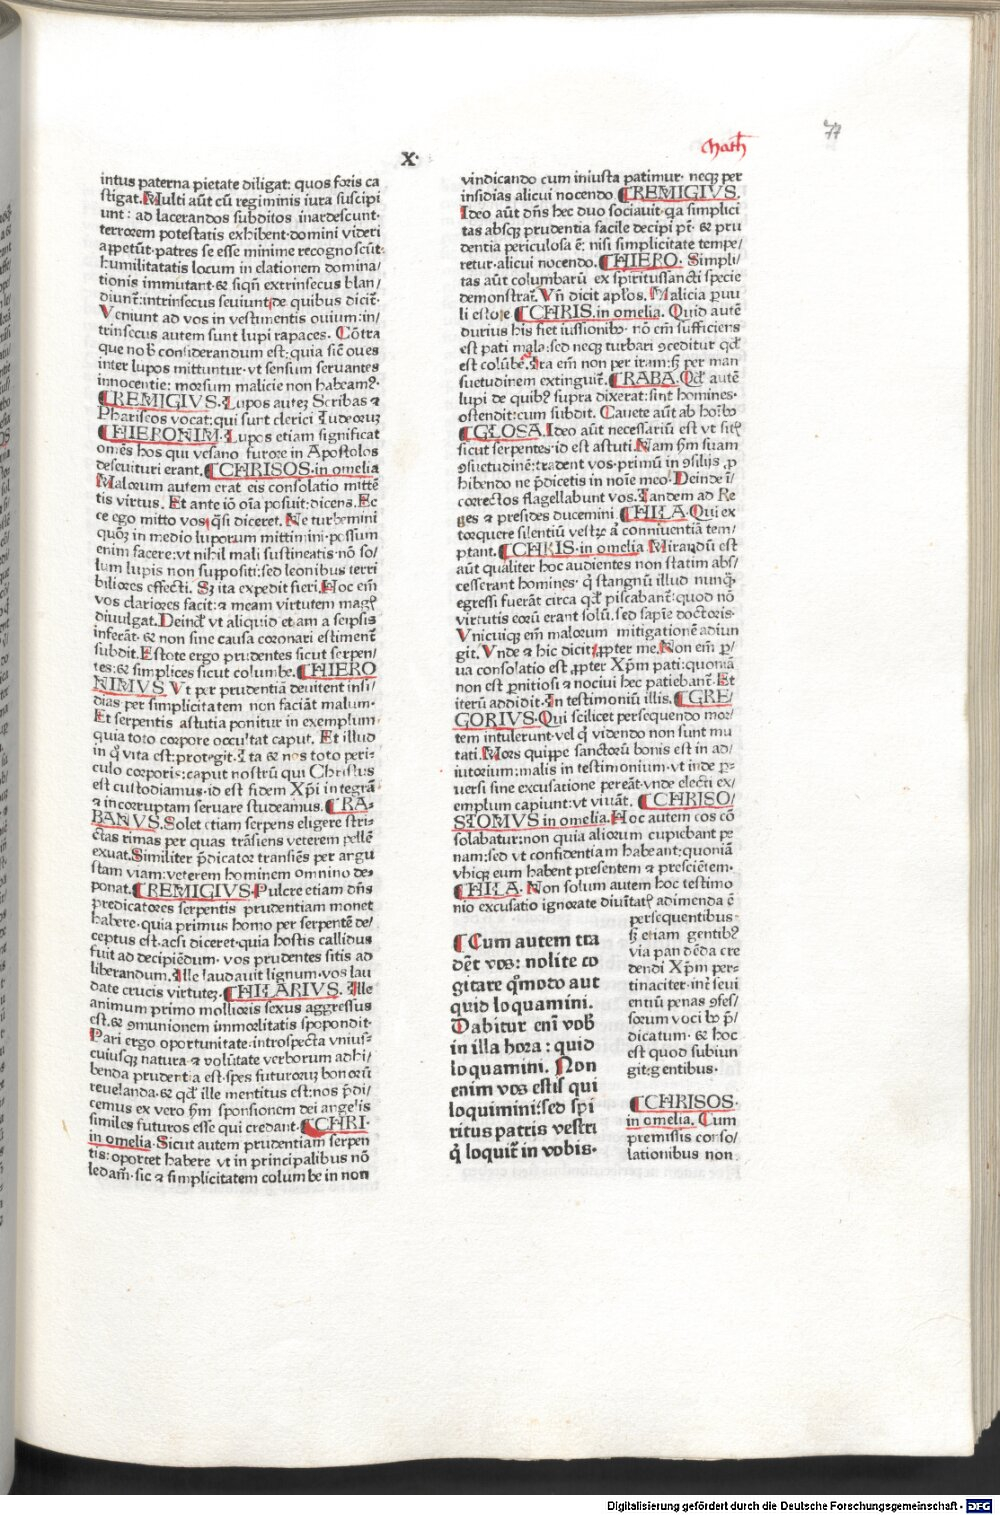 77
Math̄
X·
intus paterna pietate diligat: quos foris ca
stigat. Multi aūt cū regiminis iura suscipi
unt: ad lacerandos subditos inardescunt·
terrorem potestatis exhibent·domini videri
appetūt·patres se esse minime recognoscūt:
humilitatatis locum in elationem domina/
tionis immutant·& siqñ extrinsecus blan/
diunt̄:intrinsecus seuiunt;de quibus dicit̄·
Veniunt ad vos in vestimentis ouium:in/
trinsecus autem sunt lupi rapaces. Cōtra
que nob̄ considerandum est:quia sic̄ oues
inter lupos mittuntur·vt sensum seruantes
innocentie: morsum malicie non habeamꝰ.
REMIGIVS. Lupos autez Scribas ⁊
Phariseos vocat:qui surt clerici Iudeoruz
HIERONIM. Lupos etiam significat
om̄es hos qui vesano furore in Apostolos
deseuituri erant. CHRISOS·in omelia
Malorum autem erat eis consolatio mittē
tis virtus. Et ante iō oīa posuit:dicens. Ec
ce ego mitto vos; q̄si diceret. Ne turbemini
quoꝫ in medio luporum mittimini·possum
enim facere:vt nihil mali sustineatis·nō so/
lum lupis non suppositi:sed leonibus terri
biliores effecti. Sꝫ ita expedit fieri. Hoc em̄
vos clariores facit:⁊ meam virtutem magꝭ
diuulgat. Deind̄ vt aliquid et am a seipsis
inferāt·& non sine causa coronari estiment̄
subdit. Estote ergo prudentes sicut serpen/
tes:& simplices sicut columbe. HIERO
NIMVS Vt per prudentiā deuitent insi/
dias per simplicitatem non faciāt malum·
Et serpentis astutia ponitur in exemplum
quia toto corpore occultat caput. Et illud
in q̄ vita est:protegit. Ita & nos toto peri-
culo corporis:caput nostrū qui Christus
est custodiamus·id est fidem Xp̄i integrā
⁊ incorruptam seruare studeamus. RA-
BANVS. Solet etiam serpens eligere stri-
ctas rimas per quas trāsiens veterem pellē
exuat. Similiter p̄dicator transiēs per argu
stam viam:veterem hominem omnino de-
ponat. REMIGIVS· Pulcre etiam dn̄s
predicatores serpentis prudentiam monet
habere·quia primus homo per serpentē de/
ceptus est·acsi diceret·quia hostis callidus
fuit ad decipiēdum· vos prudentes sitis ad
liberandum. Ille laudauit lignum·vos lau
date crucis virtutez. HILARIVS. Ille
animum primo mollioris sexus aggressus
est·& ꝯmunionem immorlitatis spopondit·
Pari ergo oportunitate·introspecta vniusꝰ
cuiusqꝫ natura ⁊ volūtate verborum adhi/
benda prudentia est·spes futuroruz bonorū
reuelanda·& qd̄ ille mentitus est:nos p̄di/
cemus ex vero hm̄ sponsionem dei angelis
similes futuros esse qui credant. CHRI·
in omelia. Sicut autem prudentiam serpen
tis:oportet habere vt in principalibus nō
ledam̄·sic ⁊ simplicitatem columbe in non
vindicando cum iniusta patimur· neqꝫ per
insidias alicui nocendo REMIGIVS.
Ideo aūt dn̄s hec duo sociauit·qa simplici
tas absqꝫ prudentia facile decipi pt̄· & pru
dentia periculosa ē: nisi simplicitate tempe/
retur·alicui nocendo. HIERO. Simpli/
tas aūt columbarū ex spiritussancti specie
demonstrat̄. Vn̄ dicit apl̄os. Malicia puu
li estote CHRIS.in omelia. Quid autē
durius his fiet iussionibꝰ· nō em̄ sufficiens
est pati mala:sed neqꝫ turbari ꝯceditur qd̄
est colūbe. Ira em̄ non per iram:sꝫ per man
suetudinem extinguit̄. RABA. Qd̄ autē
lupi de quibꝰ supra dixerat:sint homines·
ostendit:cum subdit. Cauete aūt ab hoībꝰ
GLOSA. Ideo aūt necessariū est vt sitꝭ
sicut serpentes·id est astuti. Nam hm̄ suam
ꝯsuetudinē:tradent vos·primū in ꝯsilijs ꝓ
hibendo ne p̄dicetis in noīe meo· Deinde ī/
correctos flagellabunt vos. Tandem ad Re
ges ⁊ presides ducemini HILA. Qui ex
torquere silentiū vestrꝫ aʹ conniuentiā tem/
ptant. CHRIS·in omelia Mirandū est
aūt qualiter hoc audientes non statim abs/
cesserant homines· q̄ stangnū illud nunqꝫ
egressi fuerāt circa qd̄ piscabant̄:quod nō
virtutis eorū erant solū·sed sapiē doctoris·
Vnicuiqꝫ em̄ malorum mitigationē adiun
git. Vnde ⁊ hic dicit; ꝓpter me. Non em̄ p̄/
ua consolatio est ꝓpter Xp̄m pati:quoniā
non est p̄nitiosi ⁊ nociui hec patiebant̄· Et
iterū addidit· In testimoniū illis. GRE/
GORIVS· Qui scilicet persequendo mor/
tem intulerunt·vel q̄ videndo non sunt mu
tati. Mors quippe sanctorū bonis est in ad/
iutorium:malis in testimonium·vt inde p̄-
uersi sine excusatione pereāt·vnde electi ex/
emplum capiunt:vt viuāt. CHRISO/
STOMVS in omelia. Hoc autem eos cō
solabatur:non quia aliorum cupiebant pe
nam:sed vt confidentiam habeant:quoniā
vbiqꝫ eum habent presentem ⁊ presciētem·
HILA. Non solum autem hoc testimo
nio excusatio ignorate diuītatꝭ adimenda ē
persequentibus
sꝫ etiam gentibꝰ
via pan dēda cre
dendi Xp̄m per-
tinaciter·int̄ seui
entiū penas ꝯfes/
sorum voci bꝰ p̄/
dicatum· & hoc
est quod subiun
git:gentibus·
Cum autem tra
dēt vos: nolite co
gitare qm̄odo aut
quid loquamini.
Dabitur enī vob̄
in illa hora: quid
loquamini. Non
enim vos estis qui
loquimini:sed spi
ritus patris vestri
q̄ loquit̄ in vobis·
CHRISOS·
in omelia. Cum
premissis conso/
lationibus non
Digitalisierung gefördert durch die Deutsche Forschungsgemeinschaft - DFG